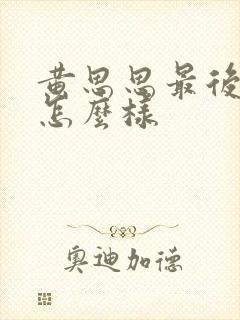 黄思思最後
怎麼樣
奧迪加德